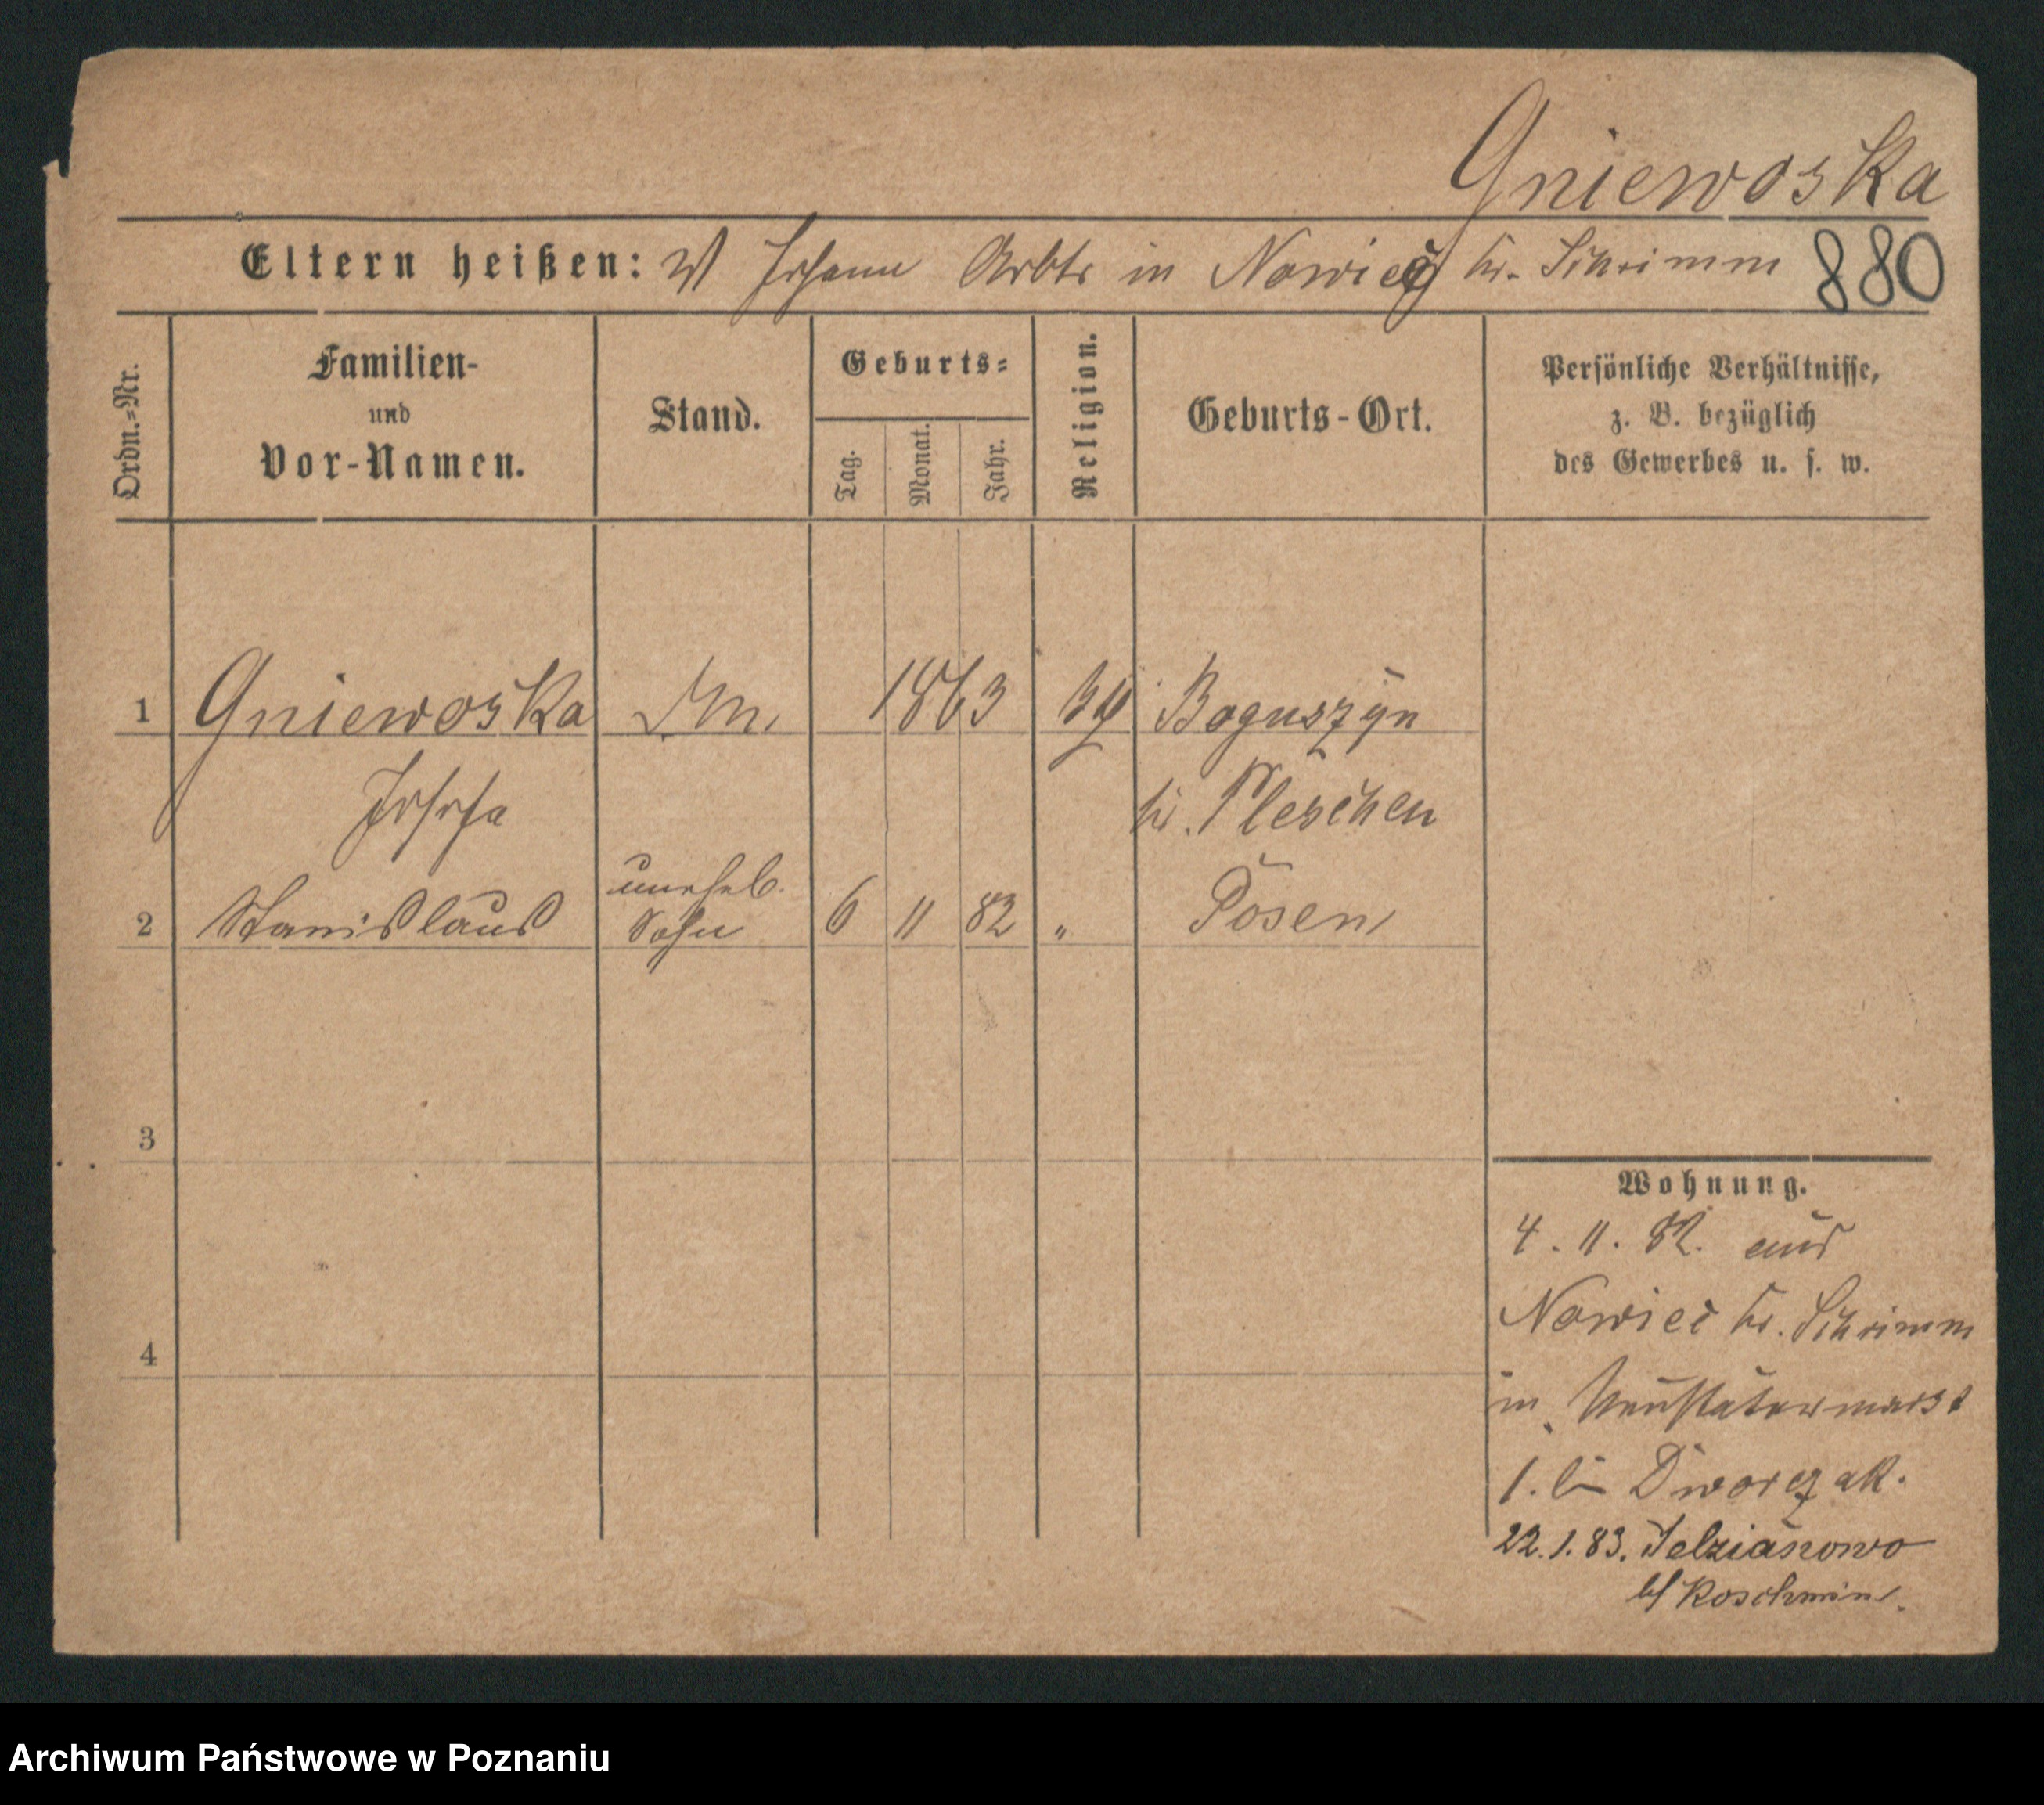 Gniewoska
Eltern heißen: Johann Arbtr in Nowiec Kr. Schrimm 880
Ordn.=Nr.
Familien-
und
Vor-Namen.
Stand.
Geburts=
Tag.
Monat.
Jahr.
Religion.
Geburts-Ort.
Persönliche Verhältnisse,
z. B. bezüglich
des Gewerbes u. s. w.
1 Gniewoska 1863 Boguszyn
Josefa Kr. Pleschen
unehel.
2 Stanislaus Sohn 6 11 82 " Posen
3
4
Wohnung.
4. 11. 82. aus
Nowiec Kr. Schrimm
in Neustädtermarkt
1. bei Dworczak.
22. 1. 83.
b/ Koschmin.
Archiwum Państwowe w Poznaniu